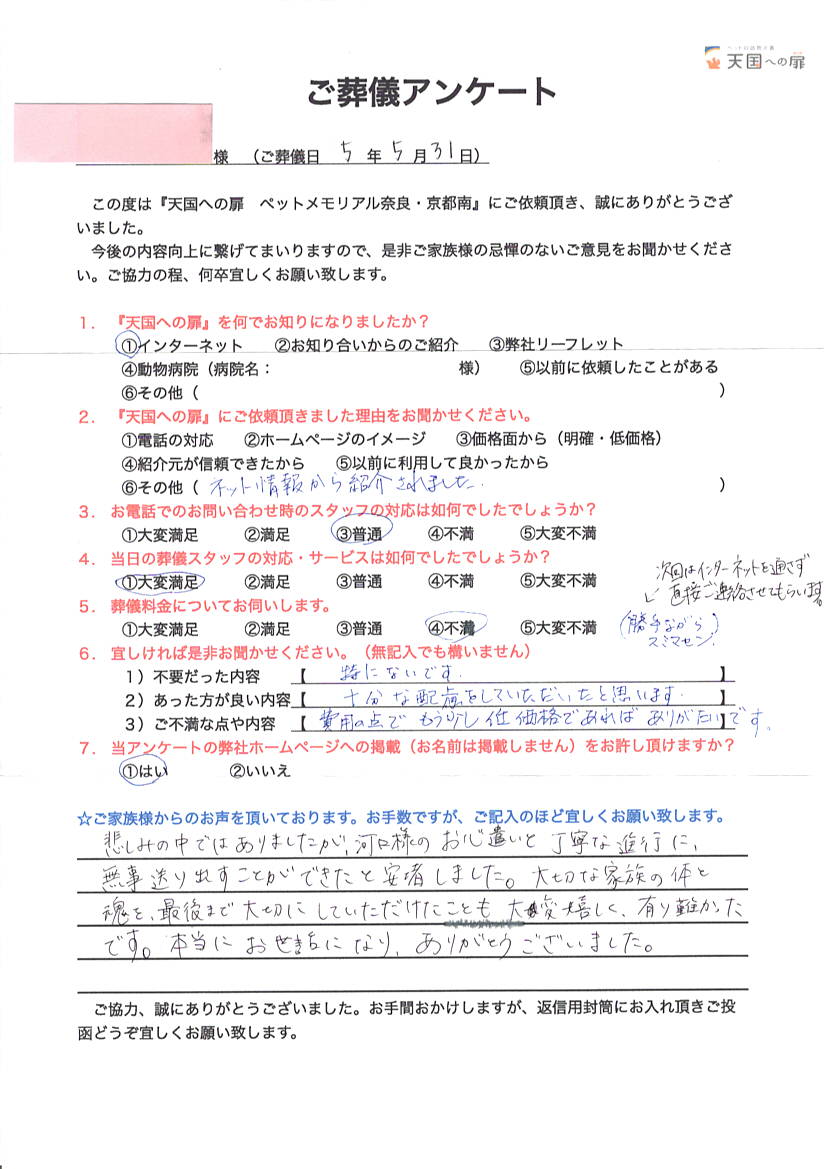 ペットの訪問火葬
天国への扉
ご葬儀アンケート
様 （ご葬儀日 5 年 5 月 31 日）
この度は『天国への扉 ペットメモリアル奈良・京都南』にご依頼頂き、誠にありがとうござ
いました。
今後の内容向上に繋げてまいりますので、是非ご家族様の忌憚のないご意見をお聞かせくださ
い。ご協力の程、何卒宜しくお願い致します。
1． 『天国への扉』を何でお知りになりましたか？
①インターネット ②お知り合いからのご紹介 ③弊社リーフレット
④動物病院（病院名： 様） ⑤以前に依頼したことがある
⑥その他（ ）
2． 『天国への扉』にご依頼頂きました理由をお聞かせください。
①電話の対応 ②ホームページのイメージ ③価格面から（明確・低価格）
④紹介元が信頼できたから ⑤以前に利用して良かったから
⑥その他（ ネット情報から紹介されました. ）
3． お電話でのお問い合わせ時のスタッフの対応は如何でしたでしょうか？
①大変満足 ②満足 ③普通 ④不満 ⑤大変不満
4． 当日の葬儀スタッフの対応・サービスは如何でしたでしょうか？
①大変満足 ②満足 ③普通 ④不満 ⑤大変不満
次回はインターネットを通さず
直接ご連絡させてもらいます。
(勝手ながら
スミマセン.)
5． 葬儀料金についてお伺いします。
①大変満足 ②満足 ③普通 ④不満 ⑤大変不満
6． 宜しければ是非お聞かせください。（無記入でも構いません）
1）不要だった内容 【 特にないです. 】
2）あった方が良い内容【 十分な配慮をしていただいたと思います. 】
3）ご不満な点や内容 【 費用の点で もう少し低価格であれば ありがたい】です。
7． 当アンケートの弊社ホームページへの掲載（お名前は掲載しません）をお許し頂けますか？
①はい ②いいえ
☆ご家族様からのお声を頂いております。お手数ですが、ご記入のほど宜しくお願い致します。
悲しみの中ではありましたが、河口様の お心遣いと 丁寧な進行に、
無事送り出すことができたと安堵しました。大切な家族の体と
魂を、最後まで大切にしていただけたことも 大変嬉しく、有り難かった
です。本当に お世話になり、ありがとうございました。
ご協力、誠にありがとうございました。お手間おかけしますが、返信用封筒にお入れ頂きご投
函どうぞ宜しくお願い致します。